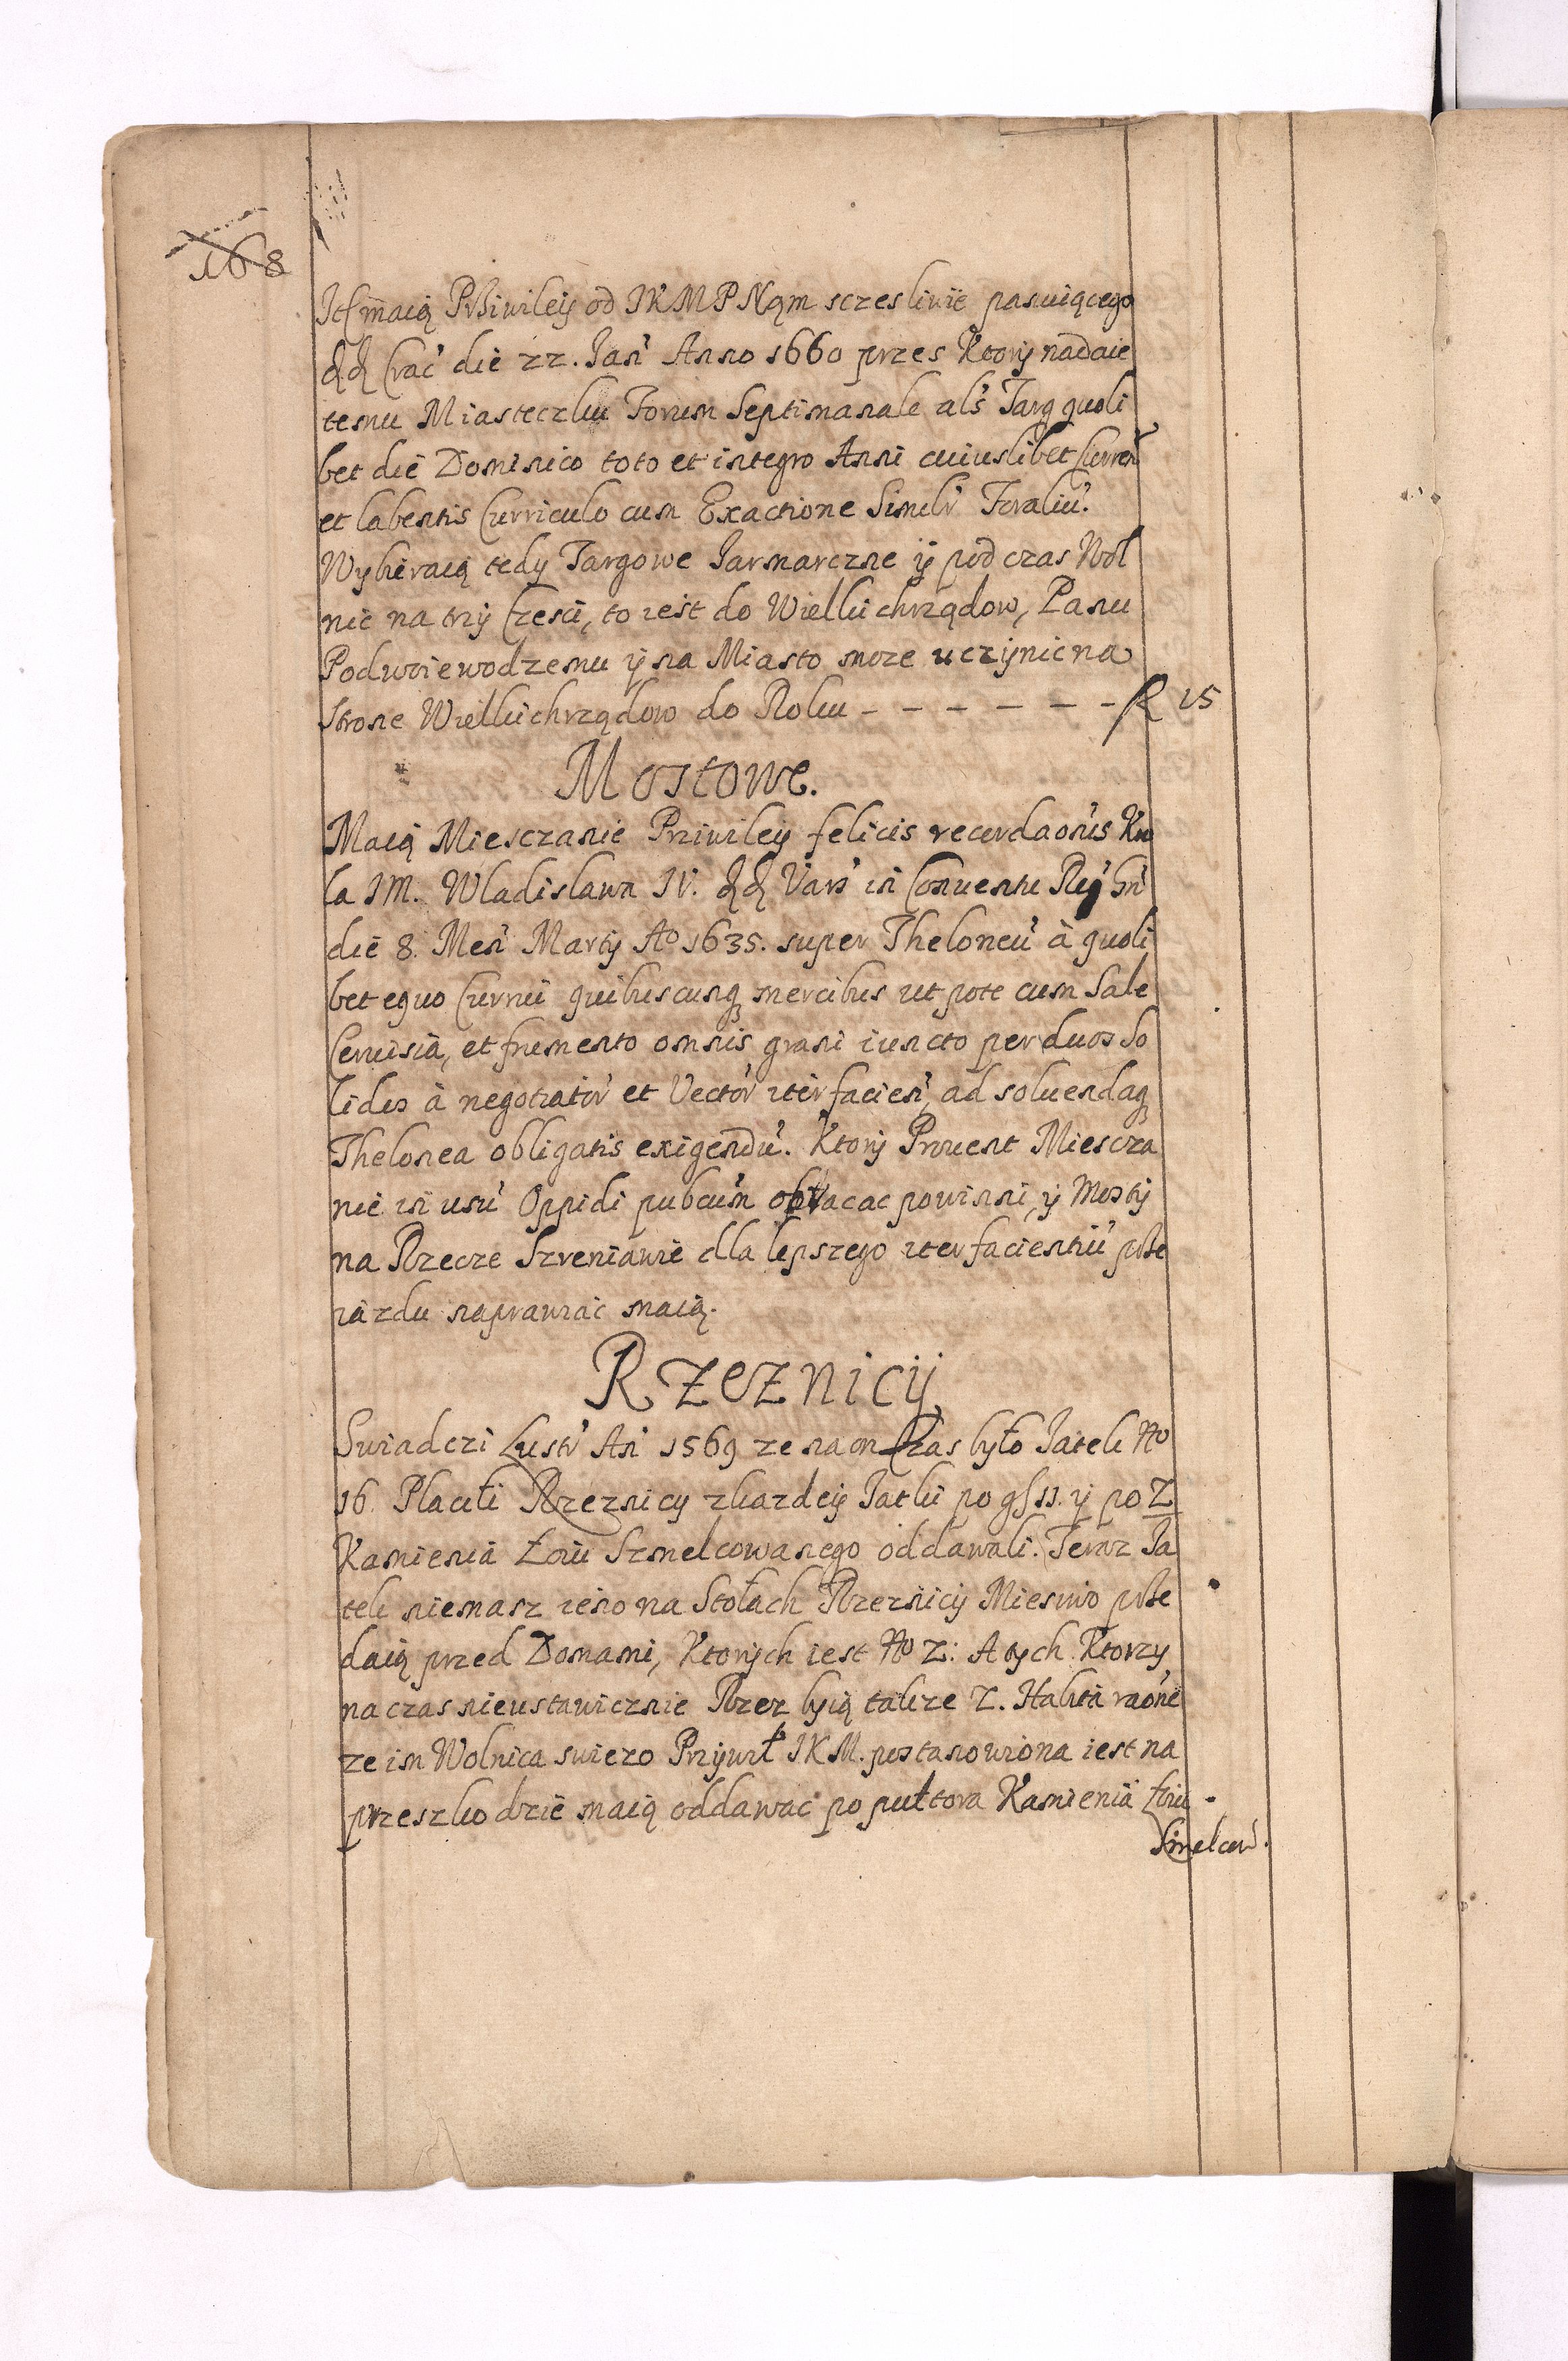 168
It[em] maią Prziwiley od IKMPNąm sczesliwie panuiącego
dd Crac' die 22. Jan' Anno 1660 przes Ktory nadaie
temu Miasteczku Forum Septimanale als' Targ quoli
bet die Dominico toto et integro Anni cuiuslibet Curren'
et labentis Curriculo cum Exactione Simlr' Foraliu'.
Wybieraią tedy Targowe Jarmarczne ÿ pod czas Wol
nic na trzy Czesci, to iest do Wielkichrządow, Panu
Podwoiewodzemu ÿ na Miasto moze uczÿnic na
strone Wielkichrządow do Roku - - - - - - - f 15
Mostowe.
Maią Miesczanie Priwiley felicis recordaonis Kro
la IM. Wladislawa IV. dd Vars' in Conuentu Reg' Gn'
die 8. Men' Martÿ Ao 1635. super Theloneu' à quoli
bet equo Currui quibuscunq mercibus ut pote cum Sale
Ceruisia, et frumento omnis grani iuncto per duos So
lidos à negotiator' et Vector' iter facien', ad soluendaq
Thelonea obligatis exigendu'. Ktory Prouent Miescza
nie in usu' Oppidi pubcum obracac powinni, ÿ Mosty
na Rzecze Szreniawie dla lepszego iter facientiu' prze
iazdu naprawiac maią.
Rzeznicÿ
Swiadczi Lustr' An' 1569 ze na on Czas było Jatek No
16. Placili Rzeznicy z kazdeÿ Jatki po gs 11. ÿ po 2
Kamienia Łoiu Szmelcowanego oddawali. Teraz Ja
tek niemasz ieno na Stołach Rzeznicÿ Mieswo prze
daią przed Domami, Ktorych iest No 2: A tych Ktorzy
na czas nieustawicznie Rzez byią takze 2. Habita raone
ze im Wolnica swiezo Przÿwil IKM. postanowiona iest na
przeszkodzie maią oddawac po pułtora Kamienia Łoiu
Smelcow'.